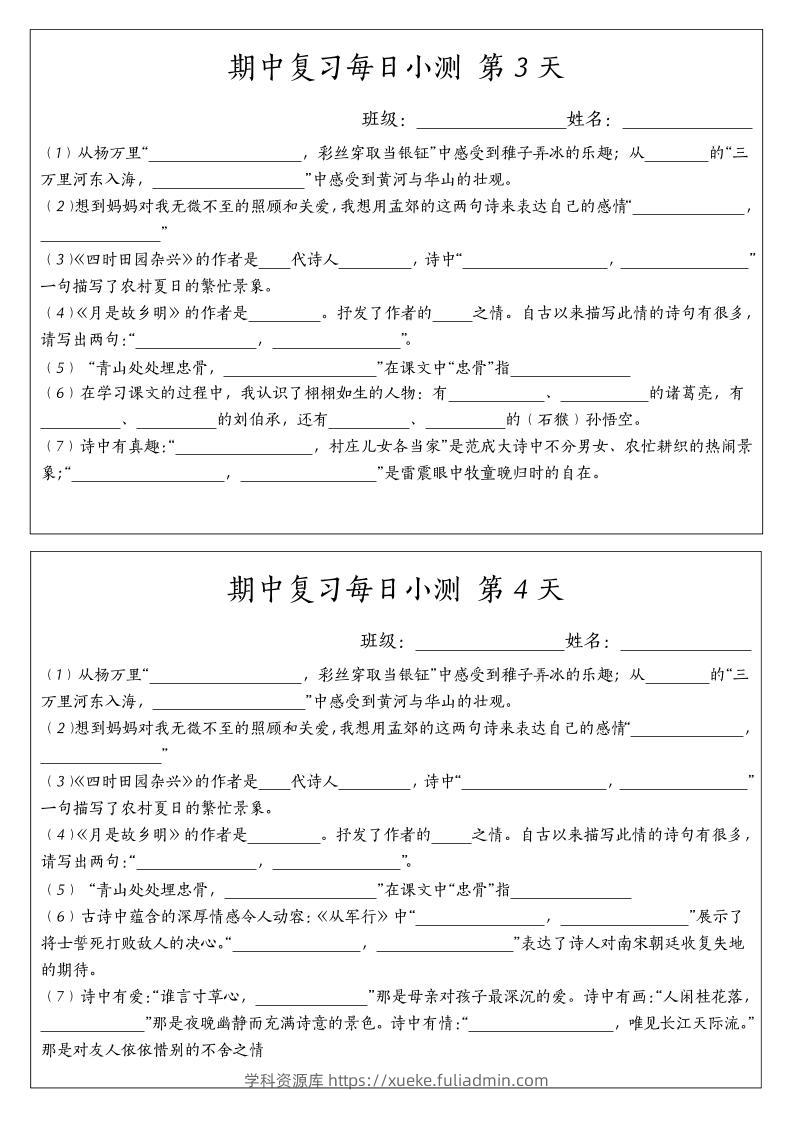 期中复习每日小测 第 3 天
班级：______________姓名：____________
（1）从杨万里“________________，彩丝穿取当银钲”中感受到稚子弄冰的乐趣；从_______的“三
万里河东入海，________________”中感受到黄河与华山的壮观。
（2）想到妈妈对我无微不至的照顾和关爱，我想用孟郊的这两句诗来表达自己的感情“____________，
_____________”
（3）《四时田园杂兴》的作者是____代诗人________，诗中“________________，______________”
一句描写了农村夏日的繁忙景象。
（4）《月是故乡明》的作者是________。抒发了作者的_____之情。自古以来描写此情的诗句有很多，
请写出两句：“_____________，______________”。
（5）“青山处处埋忠骨，________________”在课文中“忠骨”指_____________
（6）在学习课文的过程中，我认识了栩栩如生的人物：有__________、_________的诸葛亮，有
________、________的刘伯承，还有________、________的（石猴）孙悟空。
（7）诗中有真趣：“______________，村庄儿女各当家”是范成大诗中不分男女、农忙耕织的热闹景
象；“________________，______________”是雷震眼中牧童晚归时的自在。
期中复习每日小测 第 4 天
班级：______________姓名：____________
（1）从杨万里“________________，彩丝穿取当银钲”中感受到稚子弄冰的乐趣；从_______的“三
万里河东入海，________________”中感受到黄河与华山的壮观。
（2）想到妈妈对我无微不至的照顾和关爱，我想用孟郊的这两句诗来表达自己的感情“____________，
_____________”
（3）《四时田园杂兴》的作者是____代诗人________，诗中“________________，______________”
一句描写了农村夏日的繁忙景象。
（4）《月是故乡明》的作者是________。抒发了作者的_____之情。自古以来描写此情的诗句有很多，
请写出两句：“_____________，______________”。
（5）“青山处处埋忠骨，________________”在课文中“忠骨”指_____________
（6）古诗中蕴含的深厚情感令人动容：《从军行》中“______________，______________”展示了
将士誓死打败敌人的决心。“______________，________________”表达了诗人对南宋朝廷收复失地
的期待。
（7）诗中有爱：“谁言寸草心，____________”那是母亲对孩子最深沉的爱。诗中有画：“人闲桂花落，
___________”那是夜晚幽静而充满诗意的景色。诗中有情：“________________，唯见长江天际流。”
那是对友人依依惜别的不舍之情
学科资源库 https://xueke.fuliadmin.com